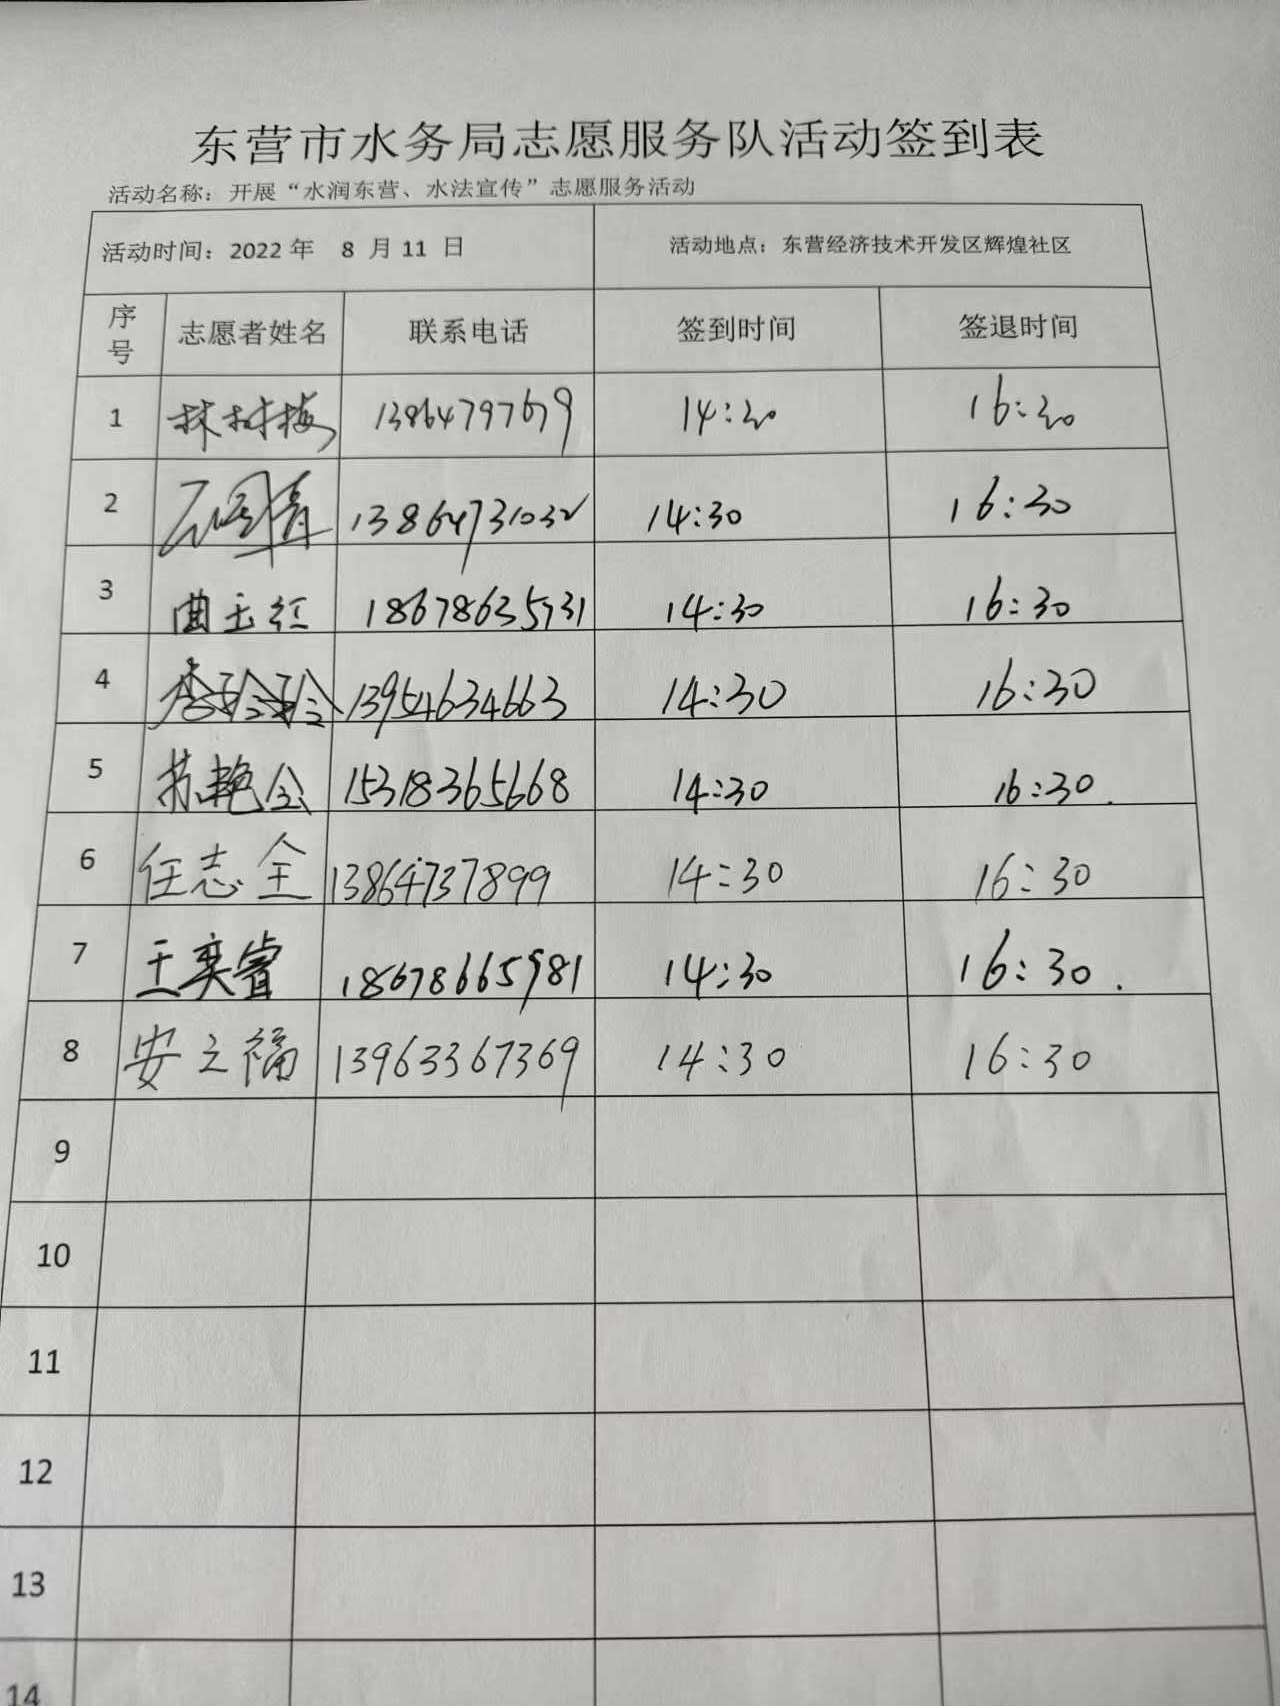 东营市水务局志愿服务队活动签到表
活动名称：开展“水润东营、水法宣传”志愿服务活动
活动时间：2022 年 8 月 11 日 活动地点：东营经济技术开发区辉煌社区
序号 志愿者姓名 联系电话 签到时间 签退时间
1 林树梅 13864797679 14:30 16:30
2 13864731032 14:30 16:30
3 曲玉红 18678635731 14:30 16:30
4 李玲玲 13954634663 14:30 16:30
5 苏艳 15318365668 14:30 16:30.
6 任志全 13864737899 14:30 16:30
7 王奕睿 18678665981 14:30 16:30.
8 安之福 13963367369 14:30 16:30
9
10
11
12
13
14